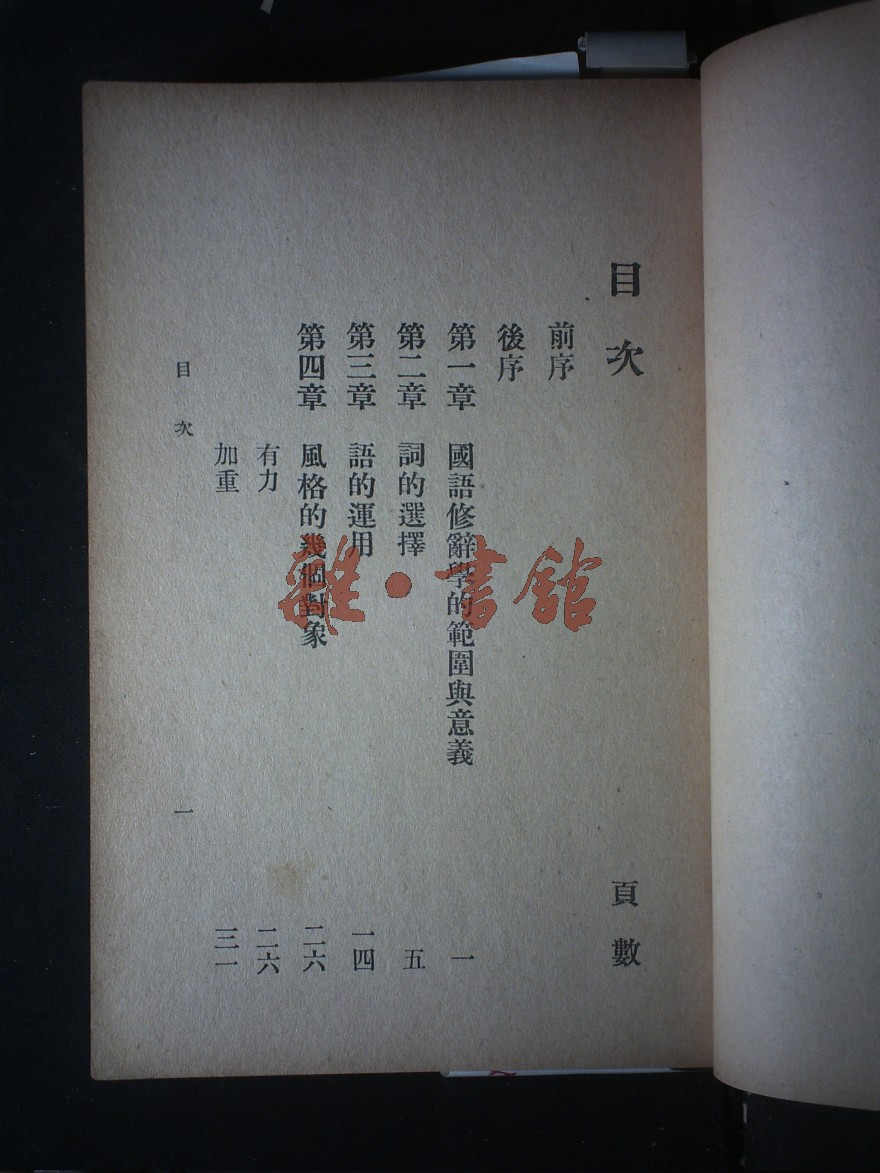 目次　頁數
前序
後序
第一章　國語修辭學的範圍與意義　一
第二章　詞的選擇　五
第三章　語的運用　一四
第四章　風格的幾個對象　二六
有力　二六
加重　三一
目次　一
雜·書館